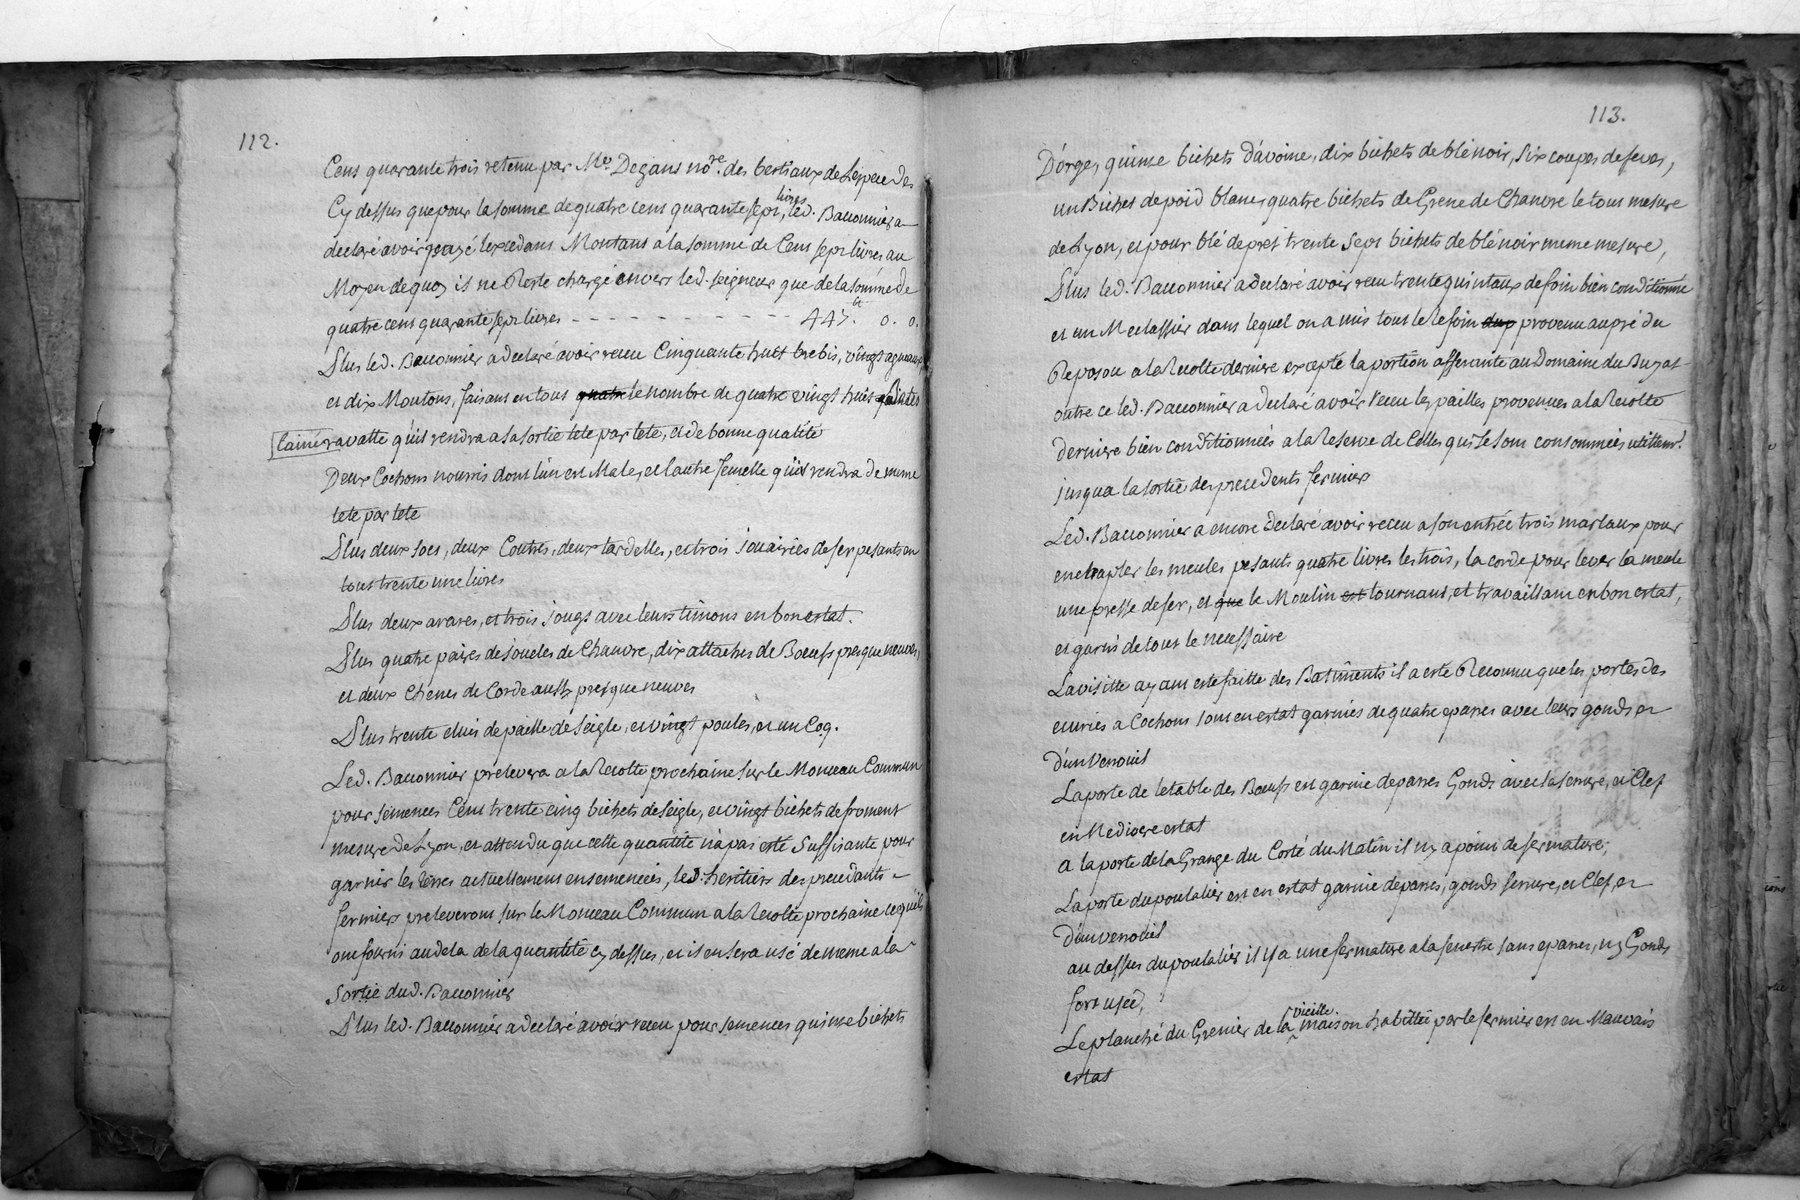 112.
Cens quarante trois retenu par Me. Degans nore. des bestiaux de Lespece des
Cy dessus que pour la somme de quatre cens quarante sept livres, led. Bauonnier a
declaré avoir payé lexcedans Montans a la somme de Cens sept livres au
Moyen de quoy il ne Reste chargé envers led. seigneur que de la somme de
quatre cens quarante sept livres - - - - - - - - - - - - 447.tt 0. 0.
Plus led. Bauonnier a declaré avoir receu Cinquante huit brebis, vingt agneaux,
et dix Moutons, faisans en tous quatre le nombre de quatre vingt huit
Laine ravatte qu'il rendra a sa sortie tete par tete, et de bonne qualité
Deux Cochons nourris dont l'un est Male, et lautre femelle qu'il rendra de meme
tete par tete
Plus deux socs, deux Coutres, deux tardelles, et trois de fer pesants en
tous trente une livres
Plus deux arares, et trois jougs avec leurs timons en bon estat.
Plus quatre paires de joucles de Chanvre, dix attaches de Boeufs presque neuves,
et deux Chenes de Corde aussy presque neuves
Plus trente cluis de paille de seigle, et vingt poules, et un Coq.
Led. Bauonnier prelevera a la Recolte prochaine sur le Monceau Commun
pour semences Cens trente cinq bichets de seigle, et vingt bichets de froment
mesure de Lyon, et attendu que cette quantité n'a pas esté suffisante pour
garnir les terres actuellement ensemencées, les d. heritiers des precedants
fermiers preleveront sur le Monceau Commun a la Recolte prochaine ce qu'ils
ont fourni au dela de la quantité cy dessus, et il en sera usé de meme a la
Sortie dud. Bauonnier
Plus led. Bauonnier a declaré avoir receu pour semences quinse bichets
113.
D'orge, quinse bichets d'avoine, dix bichets de blé noir, six coupes de feves,
un Bichet de poid blanc, quatre bichets de Grene de Chanvre le tous mesure
de Lyon, et pour blé de pret trente sept bichets de blé noir meme mesure,
Plus led. Bauonnier a declaré avoir receu trente quintaux de foin bien conditionné
et un Meclassier dans lequel on a mis tous le Refoin dup provenu au pré du
Reposou a la Recolte derniere excepté la portion afferante au Domaine du Buyat
outre ce led. Bauonnier a declaré avoir receu les pailles provenues a la Recolte
derniere bien conditionnées a la Reserve de Celles qui se sont consommées utillemt.
jusqua la sortie des precedents fermiers
Led. Bauonnier a encore declaré avoir receu a son entrée trois martaux pour
enchapler les meules pesants quatre livres les trois, la corde pour lever la meule
une presse de fer, et que le Moulin est tournant, et travaillant en bon estat,
et garni de tout le necessaire
La visitte ayant esté faitte des Batiments il a esté Reconnu que les portes des
ecuries a Cochons sont en estat garnies de quatre epares avec leurs gonds et
d'un Verrouil
La porte de letable des Boeufs est garnie depares Gonds avec sa serrure, et Clef
en Mediocre estat
A la porte de la Grange du Corté du Matin il n'y a point de fermature,
La porte du poulalier est en estat garnie depares, gonds serrure, et Clef, et
d'un verrouil
au dessus du poulalier il y a une fermature a la fenestre sans epares, ny Gonds
fort usée,
Le planché du Grenier de la vieille maison habittée par le fermier est en Mauvais
estat